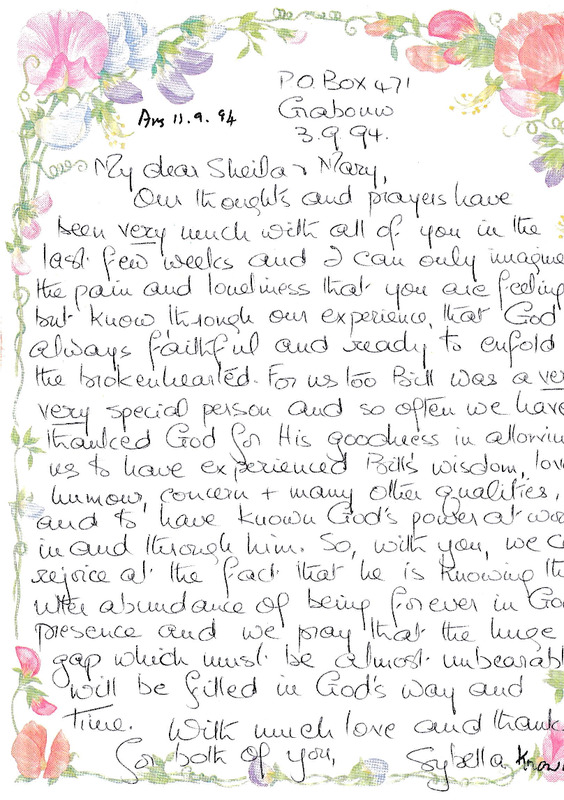 P.O. Box 471
Grabouw
Ans 11.9.94
3.9.94.
My dear Sheila & Mary,
Our thoughts and prayers have
been very much with all of you in the
last few weeks and I can only imagine
the pain and loneliness that you are feeling
but know through our experience, that God
always faithful and ready to enfold
the brokenhearted. For us too Bill was a ver
very special person and so often we have
thanked God for His goodness in allowin
us to have experienced Bill's wisdom, love
humour, concern + many other qualities,
and to have known God's power at wor
in and through him. So, with you, we c
rejoice at the fact that he is knowing th
utter abundance of being forever in Go
presence and we pray that the huge
gap which must be almost unbearabl
will be filled in God's way and
time. With much love and thank
for both of you,
Sybella Know